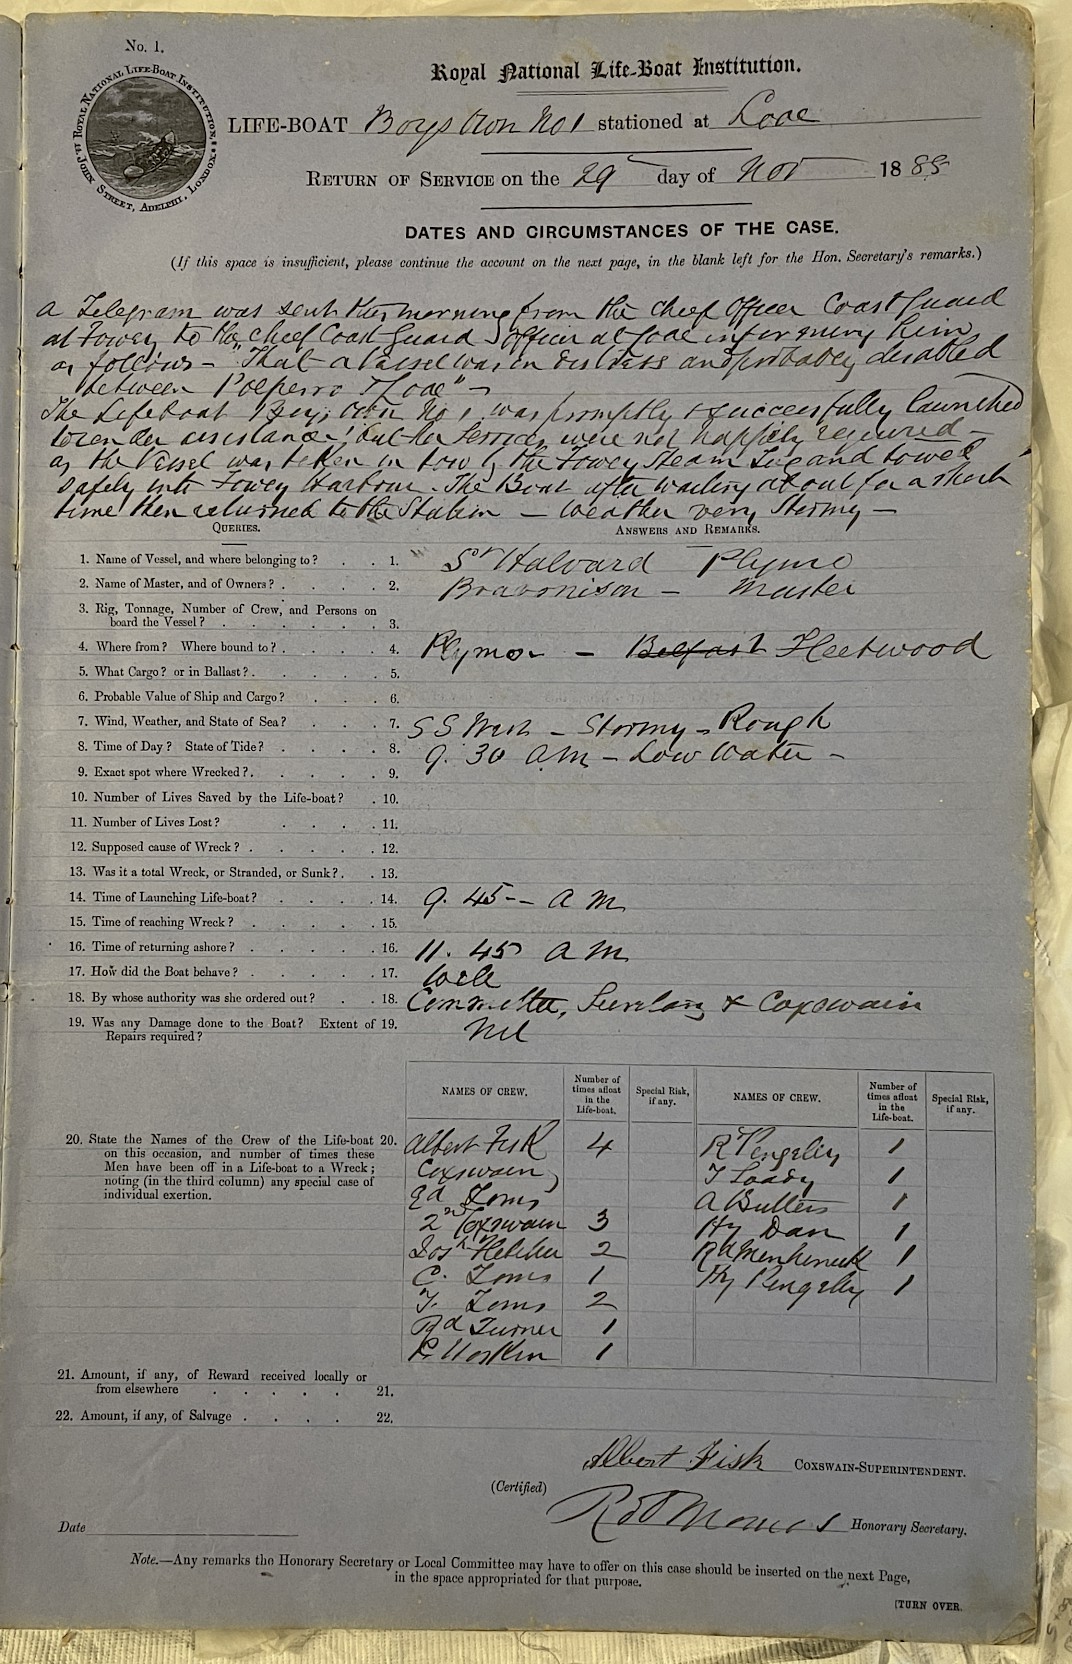 No. 1.
ROYAL NATIONAL LIFE-BOAT INSTITUTION.
JOHN STREET, ADELPHI, LONDON.
Royal National Life-Boat Institution.
LIFE-BOAT Boys Own No 1 stationed at Looe
RETURN OF SERVICE on the 29 day of Nov 1885
DATES AND CIRCUMSTANCES OF THE CASE.
(If this space is insufficient, please continue the account on the next page, in the blank left for the Hon. Secretary's remarks.)
A Telegram was sent this morning from the chief Officer Coast Guard
at Fowey to the chief Coast Guard Officer at Looe informing him
as follows - "That a Vessel was in distress and probably disabled
between Polperro & Looe" -
The Lifeboat Boys Own No 1, was promptly & successfully launched
to render assistance, but her Services were not happily required -
as the Vessel was taken in tow by the Fowey Steam Tug and towed
safely into Fowey Harbour. The Boat after waiting about for a short
time then returned to the Station - Weather very Stormy -
QUERIES. ANSWERS AND REMARKS.
1. Name of Vessel, and where belonging to? 1. St Halvard Plymo
2. Name of Master, and of Owners? 2. - Master
3. Rig, Tonnage, Number of Crew, and Persons on
board the Vessel? 3.
4. Where from? Where bound to? 4. Plymo - Belfast Fleetwood
5. What Cargo? or in Ballast? 5.
6. Probable Value of Ship and Cargo? 6.
7. Wind, Weather, and State of Sea? 7. S S West - Stormy - Rough
8. Time of Day? State of Tide? 8. 9. 30 AM - Low Water -
9. Exact spot where Wrecked? 9.
10. Number of Lives Saved by the Life-boat? 10.
11. Number of Lives Lost? 11.
12. Supposed cause of Wreck? 12.
13. Was it a total Wreck, or Stranded, or Sunk? 13.
14. Time of Launching Life-boat? 14. 9. 45 -- A M
15. Time of reaching Wreck? 15.
16. Time of returning ashore? 16. 11. 45 A M
17. How did the Boat behave? 17. Well
18. By whose authority was she ordered out? 18. Committee, Secretary & Coxswain
19. Was any Damage done to the Boat? Extent of 19. Nil
Repairs required?
NAMES OF CREW. Number of times afloat in the Life-boat. Special Risk, if any. NAMES OF CREW. Number of times afloat in the Life-boat. Special Risk, if any.
20. State the Names of the Crew of the Life-boat 20.
on this occasion, and number of times these
Men have been off in a Life-boat to a Wreck;
noting (in the third column) any special case of
individual exertion.
Albert Fisk 4 R Pengelly 1
Coxswain T Toady 1
Ed Toms A Butters 1
2nd Coxswain 3 Hy Dan 1
Josh Fletcher 2 Rd Menhenick 1
C. Toms 1 Hy Pengelly 1
T. Toms 2
Rd Turner 1
R. Hoskin 1
21. Amount, if any, of Reward received locally or
from elsewhere 21.
22. Amount, if any, of Salvage 22.
Albert Fisk COXSWAIN-SUPERINTENDENT.
(Certified)
Honorary Secretary.
Date
Note.—Any remarks the Honorary Secretary or Local Committee may have to offer on this case should be inserted on the next Page,
in the space appropriated for that purpose.
[TURN OVER.